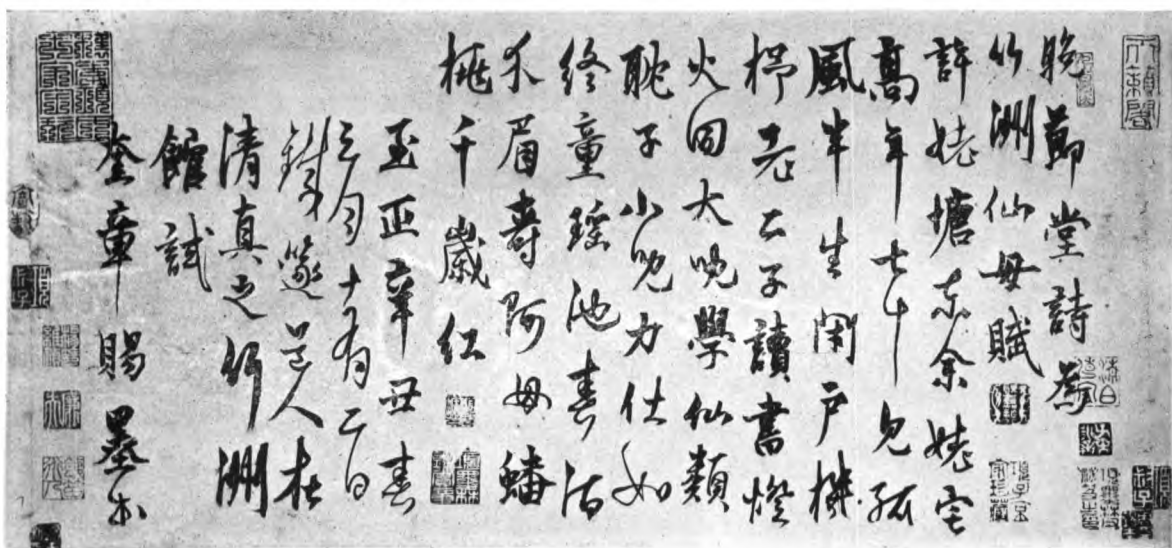 晚節堂詩為
竹洲仙母賦
許姥塘東余姥宅
高年七十見孤
風半生閉戶機
杼老二子讀書燈
火同大兒學仙類
聃子小兒力仕如
終童瑤池春酒
介眉壽阿母蟠
桃千歲紅
至正辛丑春
三月十有二日
鐵篆道人在
清真之竹洲
館試
奎章賜墨書
天籟閣
項子京家珍藏